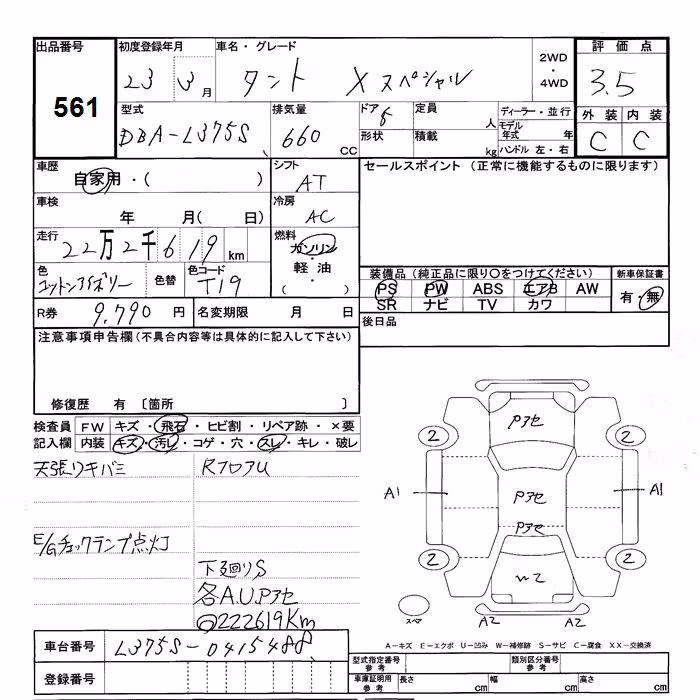 出品番号 初度登録年月 車名・グレード 2WD・4WD 評価点
561 23 3月 タント Xスペシャル 3.5
型式 排気量 ドア 定員 人 ディーラー・並行 外装 内装
DBA-L375S 660 CC 5 形状 積載 kg モデル年式 年 ハンドル 左・右 C C
車歴 自家用・( ) シフト AT セールスポイント (正常に機能するものに限ります)
車検 年 月( 日) 冷房 AC
走行 22万2千619km 燃料 ガソリン・軽油・( )
色 コットンアイボリー 色替 色コード T19
装備品 (純正品に限り○をつけてください) 新車保証書
PS PW ABS エアB AW 有・無
SR ナビ TV カワ
R券 9,790円 名変期限 月 日 後日品
注意事項申告欄(不具合内容等は具体的に記入して下さい)
修復歴 有 〔箇所 〕
検査員 FW キズ・飛石・ヒビ割・リペア跡・×要
記入欄 内装 キズ・汚レ・コゲ・穴・スレ・キレ・破レ
天張りキバミ RフロアU
E/Gチェックランプ点灯
下廻りS
各A.U.Pアセ
222619Km
Pアセ
2 2
A1 Pアセ A1
Pアセ
2 2
W2
スペア A2 A2
A-キズ E-エクボ U-凹み W-補修跡 S-サビ C-腐食 XX-交換済
車台番号 L375S-0415488
型式指定番号 参考 類別区分番号 参考
登録番号 車庫証明用 参考 長さ cm 幅 cm 高さ cm